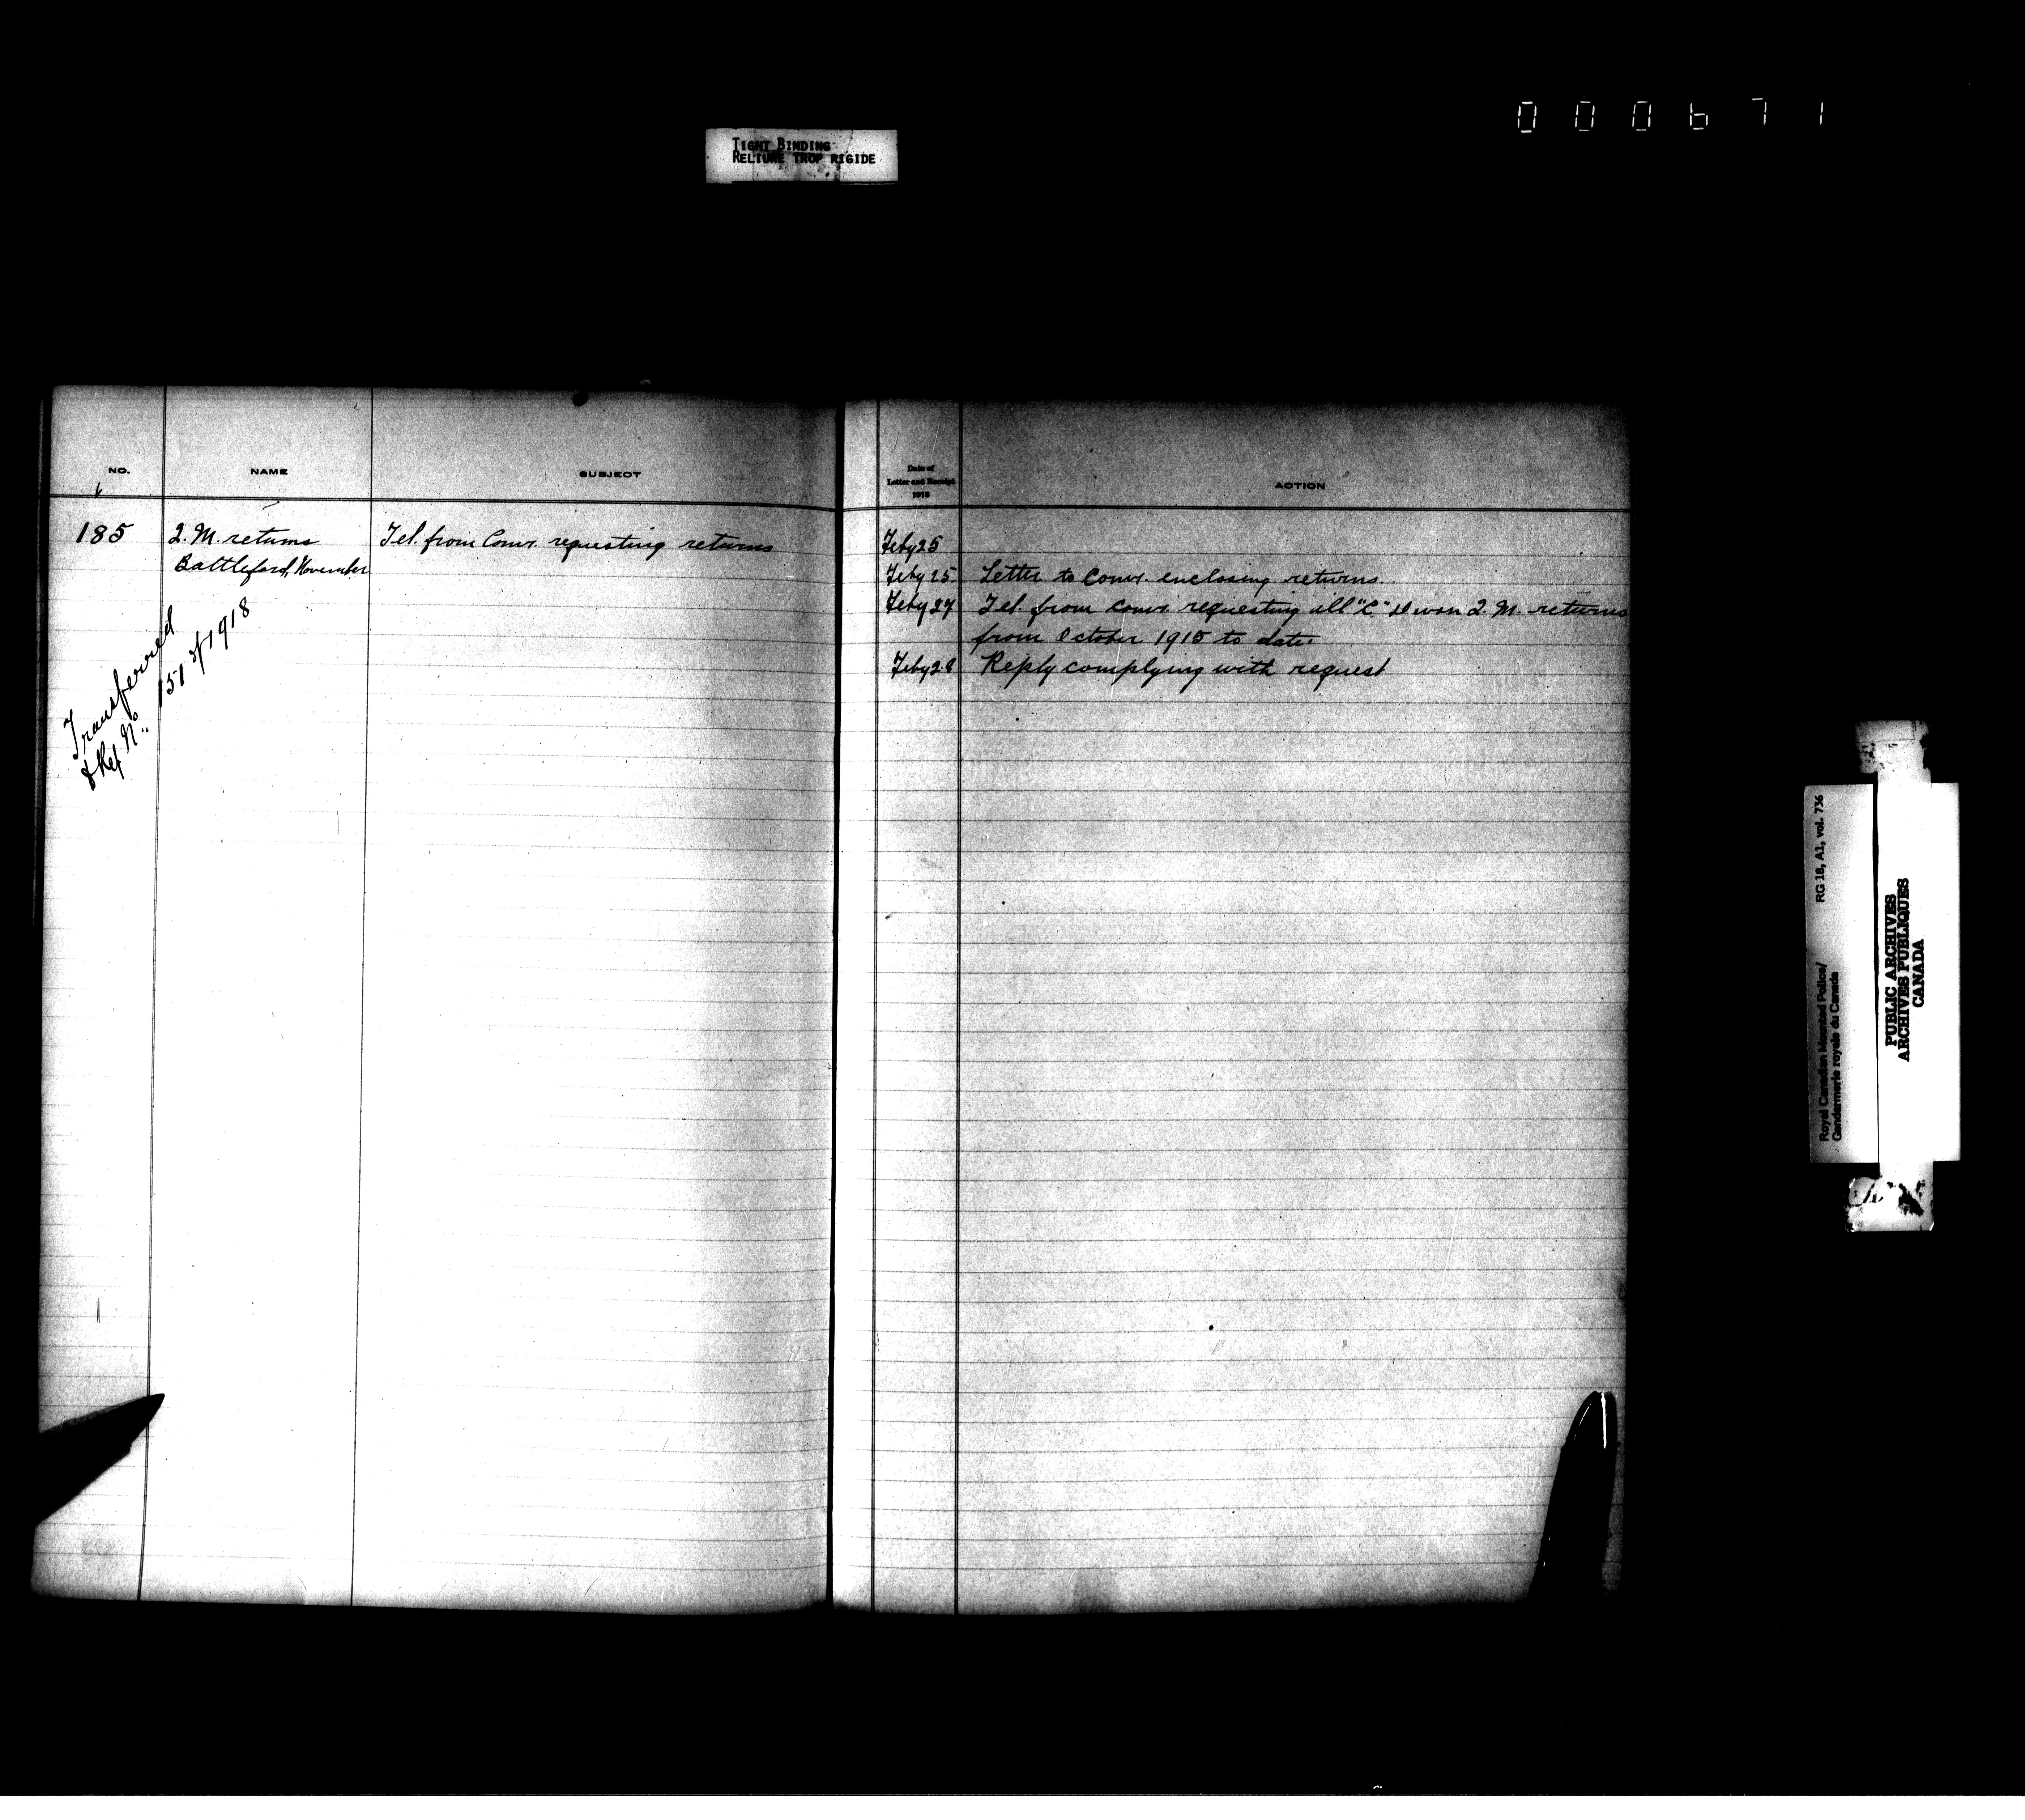 000671
TIGHT BINDING
RELIURE TROP RIGIDE
NO.
NAME
SUBJECT
185
Q. M. returns
Battleford, November
Tel. from Comr. requesting returns
Transferred
& Ref No. 151 of 1918
Date of
Letter and Receipt
1918
ACTION
Feby 25
Feby 25 Letter to Comr. enclosing returns
Feby 27 Tel. from Comr. requesting all "C" Divon Q. M. returns
from October 1915 to date.
Feby 28 Reply complying with request
RG 18, A1, vol. 736
Royal Canadian Mounted Police/
Gendarmerie royale du Canada
PUBLIC ARCHIVES
ARCHIVES PUBLIQUES
CANADA